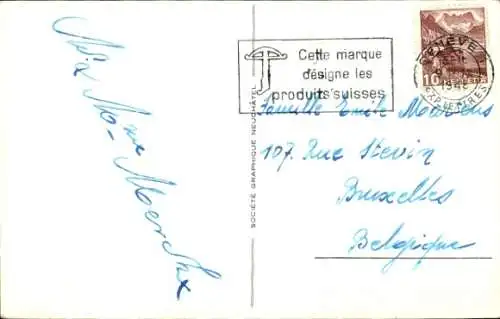 Mr & Mme Merckx
Cette marque
désigne les
produits suisses
GENÈVE
10
HELVETIA
SOCIÉTÉ GRAPHIQUE NEUCHÂTEL
Famille Emile Martens
107. Rue Stevin
Bruxelles
Belgique